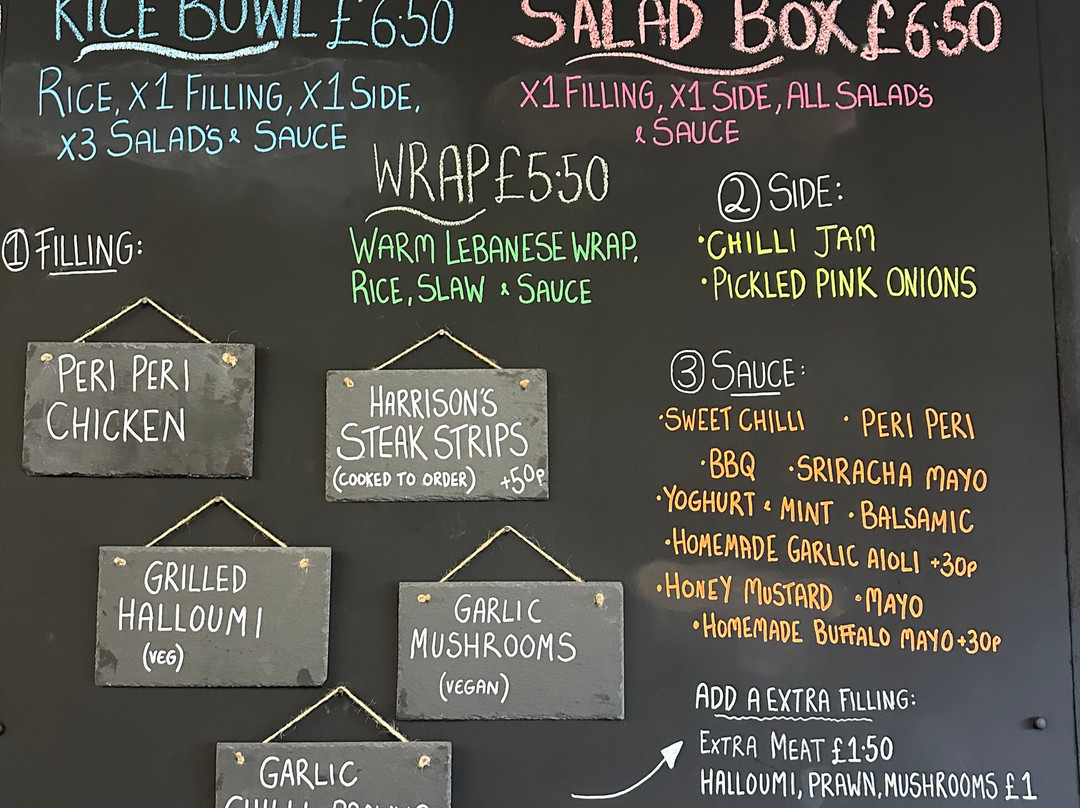 RICE BOWL £6.50
RICE, X1 FILLING, X1 SIDE,
X3 SALAD'S & SAUCE
SALAD BOX £6.50
X1 FILLING, X1 SIDE, ALL SALAD'S
& SAUCE
WRAP £5.50
WARM LEBANESE WRAP,
RICE, SLAW & SAUCE
① FILLING:
PERI PERI
CHICKEN
HARRISON'S
STEAK STRIPS
(COOKED TO ORDER) +50P
GRILLED
HALLOUMI
(VEG)
GARLIC
MUSHROOMS
(VEGAN)
GARLIC
CHILLI PRAWNS
② SIDE:
• CHILLI JAM
• PICKLED PINK ONIONS
③ SAUCE:
• SWEET CHILLI • PERI PERI
• BBQ • SRIRACHA MAYO
• YOGHURT & MINT • BALSAMIC
• HOMEMADE GARLIC AIOLI +30P
• HONEY MUSTARD • MAYO
• HOMEMADE BUFFALO MAYO +30P
ADD A EXTRA FILLING:
EXTRA MEAT £1.50
HALLOUMI, PRAWN, MUSHROOMS £1